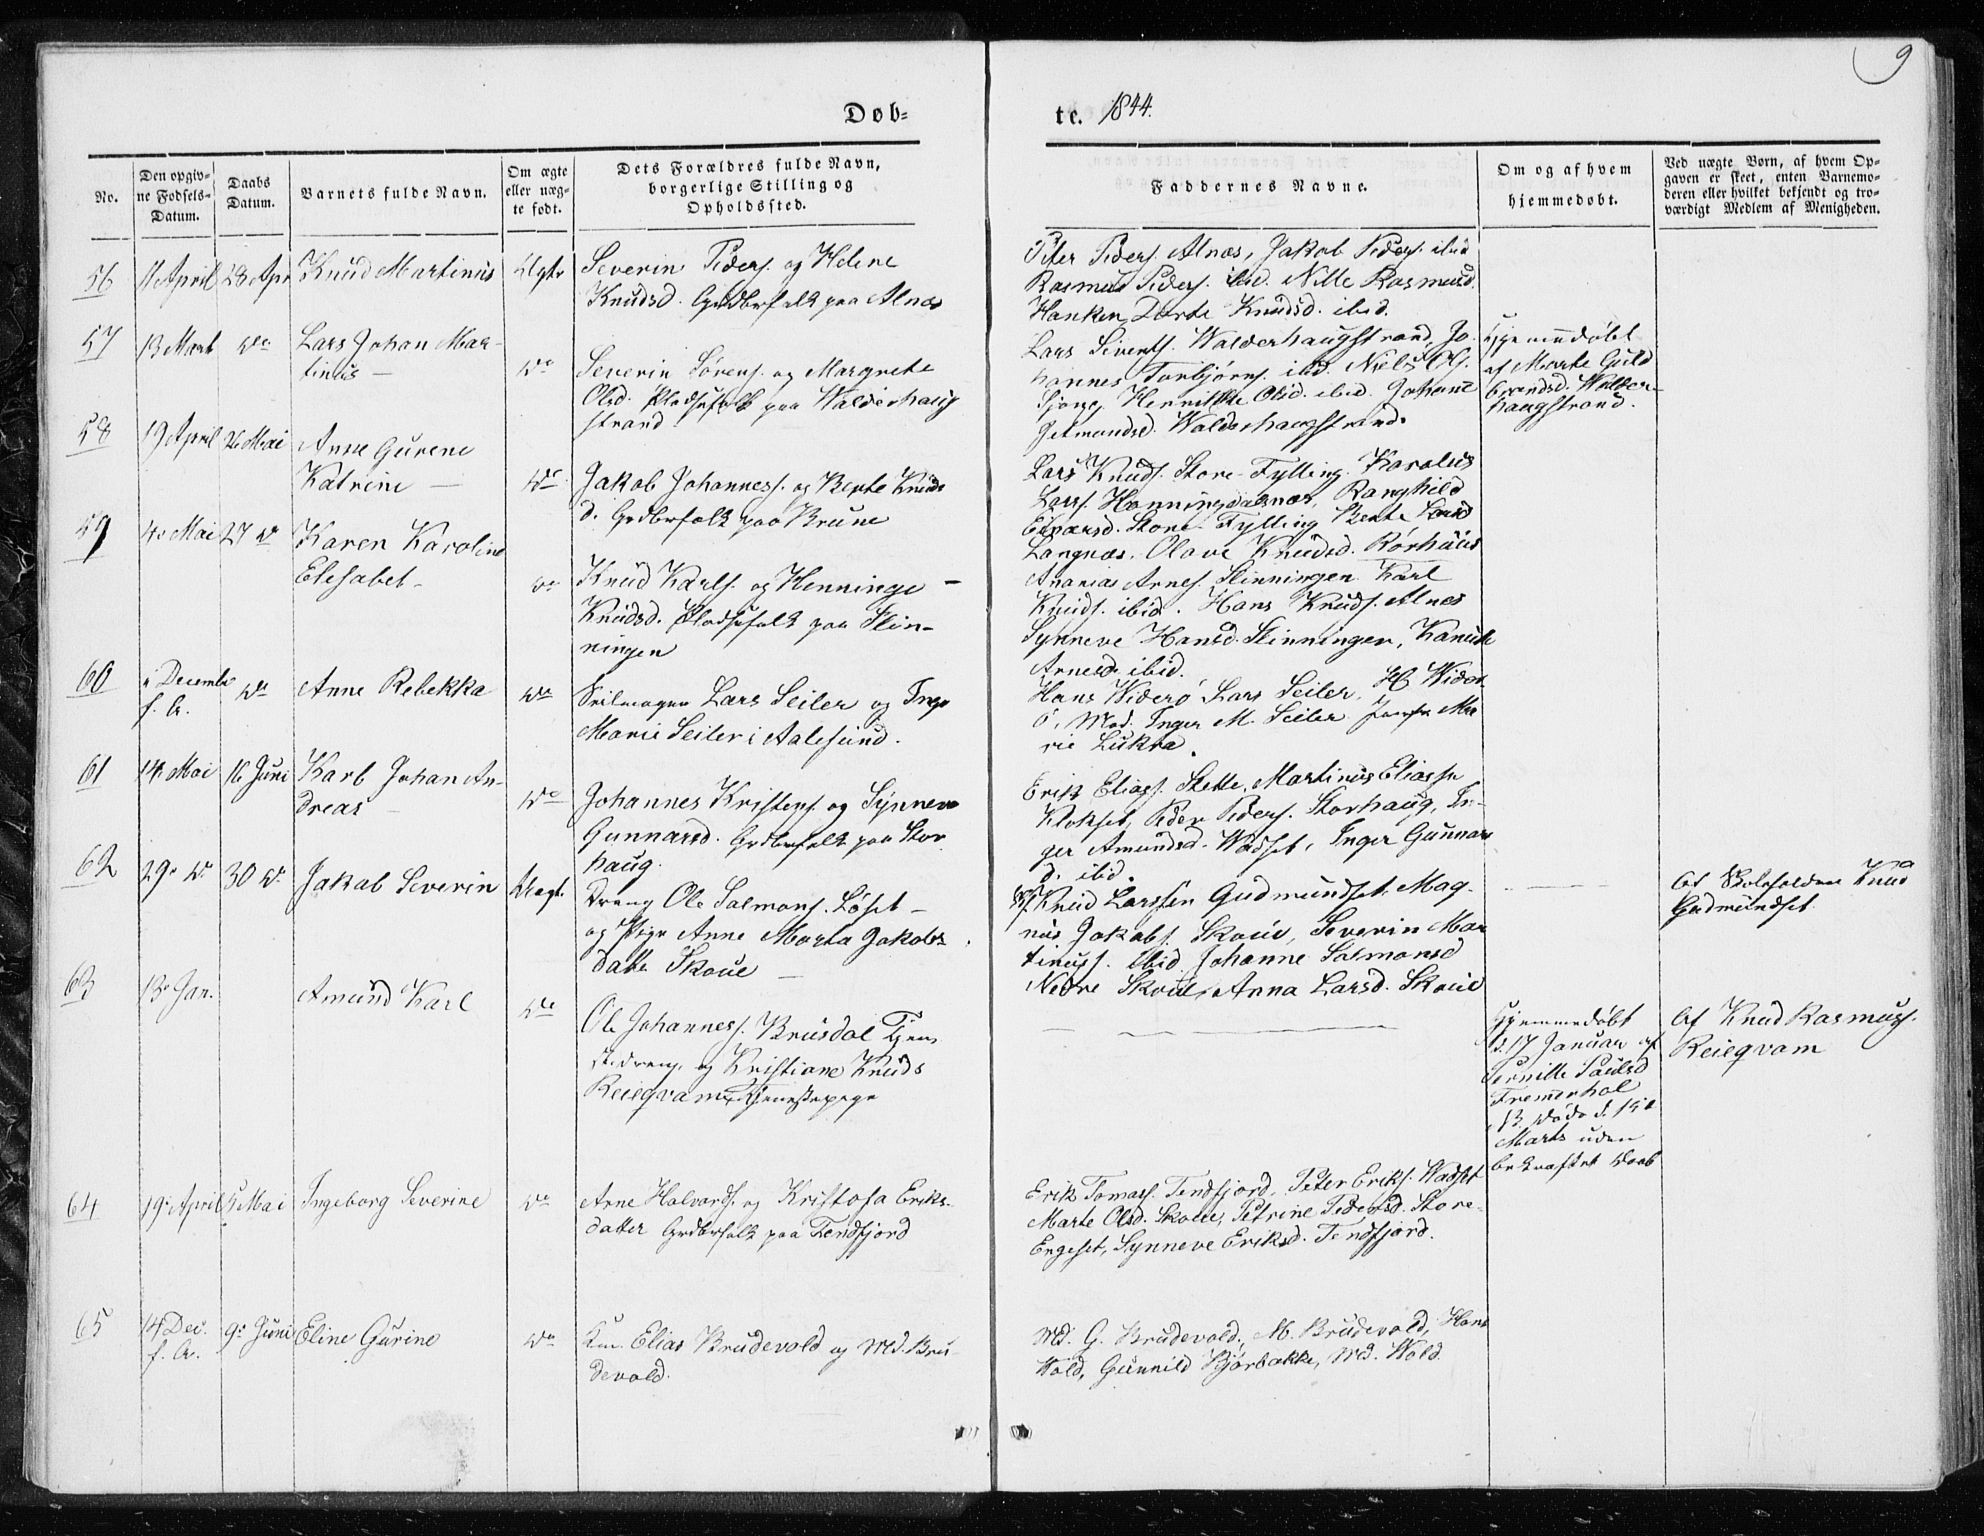 9
Døb=
te. 1844.
No.
Den opgiv-
ne Fødsels-
Datum.
Daabs
Datum.
Barnets fulde Navn.
Om ægte
eller uæg-
te født.
Dets Forældres fulde Navn,
borgerlige Stilling og
Opholdssted.
Faddernes Navne.
Om og af hvem
hjemmedøbt.
Ved uægte Børn, af hvem Op-
gaven er skeet, enten Barnemo-
deren eller hvilket bekjendt og tro-
værdigt Medlem af Menigheden.
56
11 April
28 Apr
Knud Martinus
Severin Peders. og Helene
Knudsd. Grdbrfolk paa Alnæs
Peter Peders. Alnæs, Jakob Peders. ibid
Rasmus Peders. ibid. Nille Rasmusd.
Hanken, Dorte Knudsd. ibid.
57
13 Mart
do
Lars Johan Mar-
tinus
do
Severin Sørens. og Margrete
Olsd. Pladsfolk paa Walderhaug
strand
Lars Siverts. Walderhaugstrand, Jo-
hannes Torbjørns. ibid. Niels Ols.
Sjong, Henrikke Olsd. ibid. Johane
Walderhaugstrand.
Hjemmedøbt
af Marte Guld
brandsd. Walder-
haugstrand.
58
19 April
26 Mai
Anne Gurene
Katrine
do
Jakob Johanness. og Berte Knuds
d. Grdbrfolk paa Brune
Lars Knuds. Store-Fylling. Karolus
Larss. Honningdalsnæs, Ranghild
Edvarsd. Store-Fylling Bente Larsd
Langnæs. Olave Knudsd. Rørhuus
59
4 Mai
27 do
Karen Karoline
Elesabet
do
Knud Karls. og Henninge
Knudsd. Pladsfolk paa Slin-
ningen
Ananias Arnes. Slinningen Karl
Knuds. ibid. Hans Knuds. Alnes
Synneve Hansd. Slinningen, Kanute
Arnesd. ibid.
60
Decembr
f. A.
do
Anne Rebekka
do
Seilmager Lars Seiler og Inge
Marie Seiler i Aalesund.
Hans Widerø Lars Seiler, H Wider
ø, Mad. Inger M. Seiler Jomfr Ma
rie Lukra.
61
14 Mai
16 Juni
Karl Johan An-
dreas
do
Johannes Kristens. og Synneve
Gunnarsd. Grdbrfolk paa Stor
haug.
Erik Eliass. Slette, Martinus Eliassn
Klokset, Peder Peders. Storhaug, In-
ger Amundsd. Wadset, Inger Gunnars
d. ibid.
62
29 do
30 do
Jakob Severin
Uægt.
Dreng Ole Salmons. Løset
og Pige Anne Marta Jakobs
datter Skoue
Knud Larssen Gudmundset. Mag-
nus Jakobs. Skoue, Severin Mar
tinuss. ibid Johanne Salmonsd
Nedre Skoue, Anna Larsd. Skoue
Af Skoleholder Knud
Gudmundset.
63
13 Jan.
Amund Karl
do
Ole Johanness. Brusdal Tjene
stedreng, og Kristiane Knuds
Reiegvam, Tjenestepige
Hjemmedøbt
d. 17 Januar af
Pernille Paulsd
Fremerhol
B. døde d. 15
Marts uden
bekræftet Daab
Af Knud Rasmuss.
Reiegvam
64
19 April
5 Mai
Ingeborg Severine
do
Arne Halvards. og Kristofa Eriks-
datter Grdbrfolk paa Tendfjord
Erik Tomass. Tendfjord, Peter Eriks. Wadset
Marte Olsd. Skoue, Petrine Pedersd. Store-
Engeset, Synneve Eriksd. Tendfjord.
65
14 Dec.
f. A.
9 Juni
Eline Gurine
do
Elias Brudevold og Md. Bru-
devold.
Md. G. Brudevold, M. Brudevold, Hans
Wold, Gunnild Bjørbakke, Md. Wold.